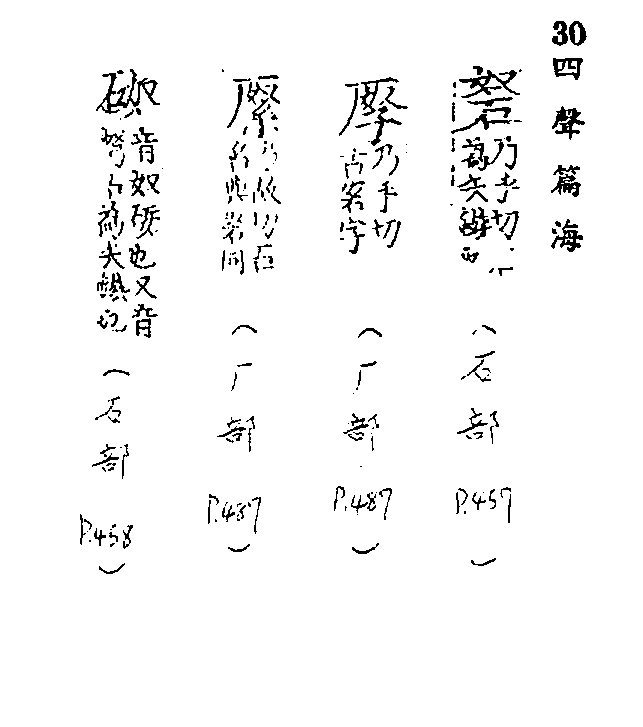 30 四聲篇海
砮 乃乎切
為矢鏃
(石部 P.457)
乃乎切
古砮字
(厂部 P.487)
乃故切石
名與砮同
(厂部 P.487)
音奴砮也又音
弩石為矢鏃也
(石部 P.458)